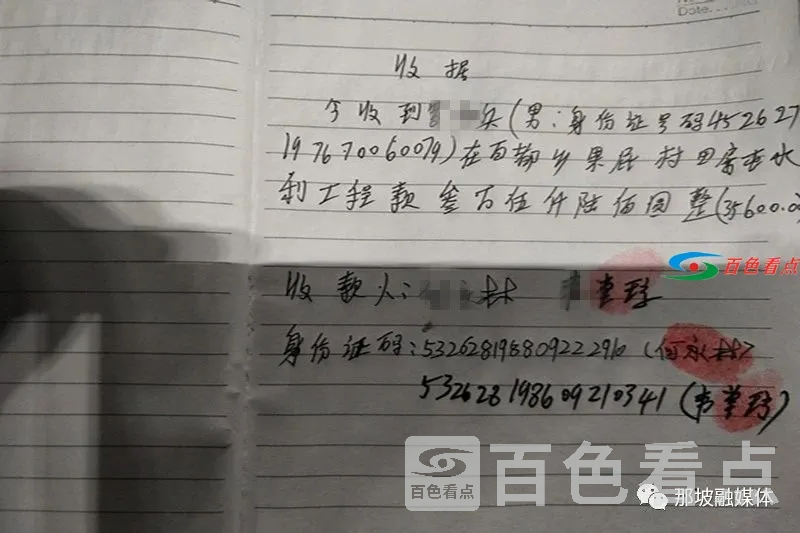 Date...
收据
今收到 兵(男:身份证号码452627
197670060079)在百都乡果屁村田房屯水
利工程款叁万伍仟陆佰圆整(35600.0
百色看点
收款人: 林
身份证码:532628198809222910(何永林)
532628198609210341(韦 )
百色看点
百色看点
那坡融媒体